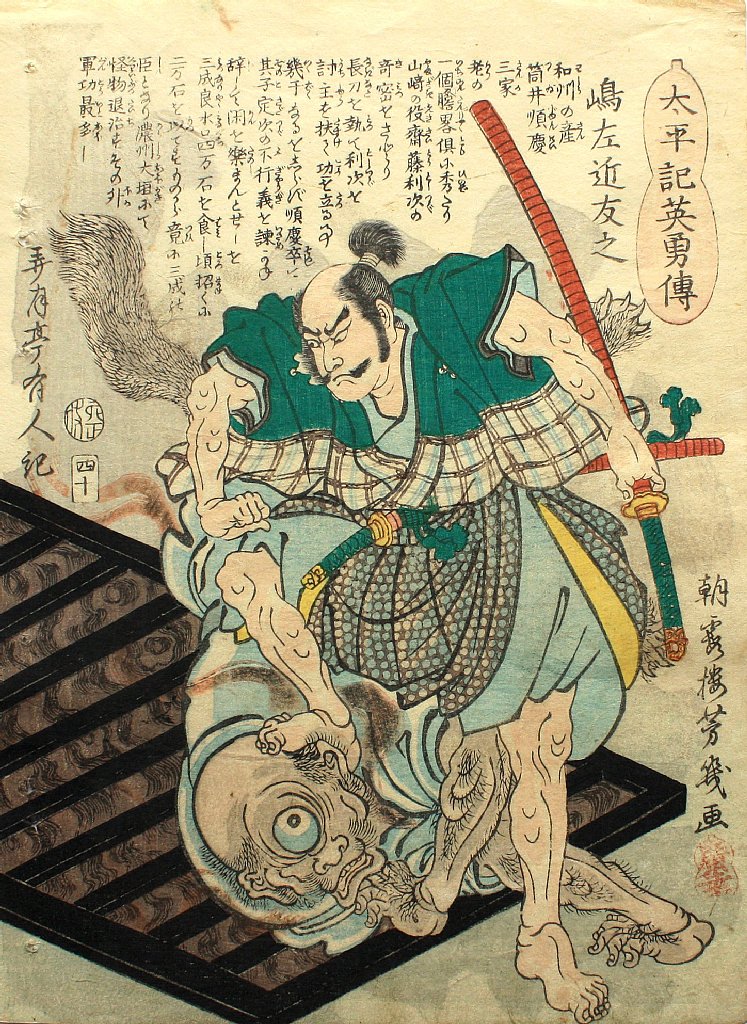 太平記英勇傳
嶋左近友之
和州の産
筒井順慶
三家
老の
一個膽畧倶小秀たり
山﨑の役齋藤利次の
奇密をさとり
長刀を執て利次を
討主を扶て功を立る
幾干なるをしらず順慶卒して
其子定次の不行義を諫れ
辞して閑を楽まんとせしを
三成良水口四万石を食し頃招くに
二万石を以てす
竟に三成の
臣となり濃州大垣にて
怪物退治其外
軍功最多し
弄月亭有人記
四十
朝霞楼芳幾画